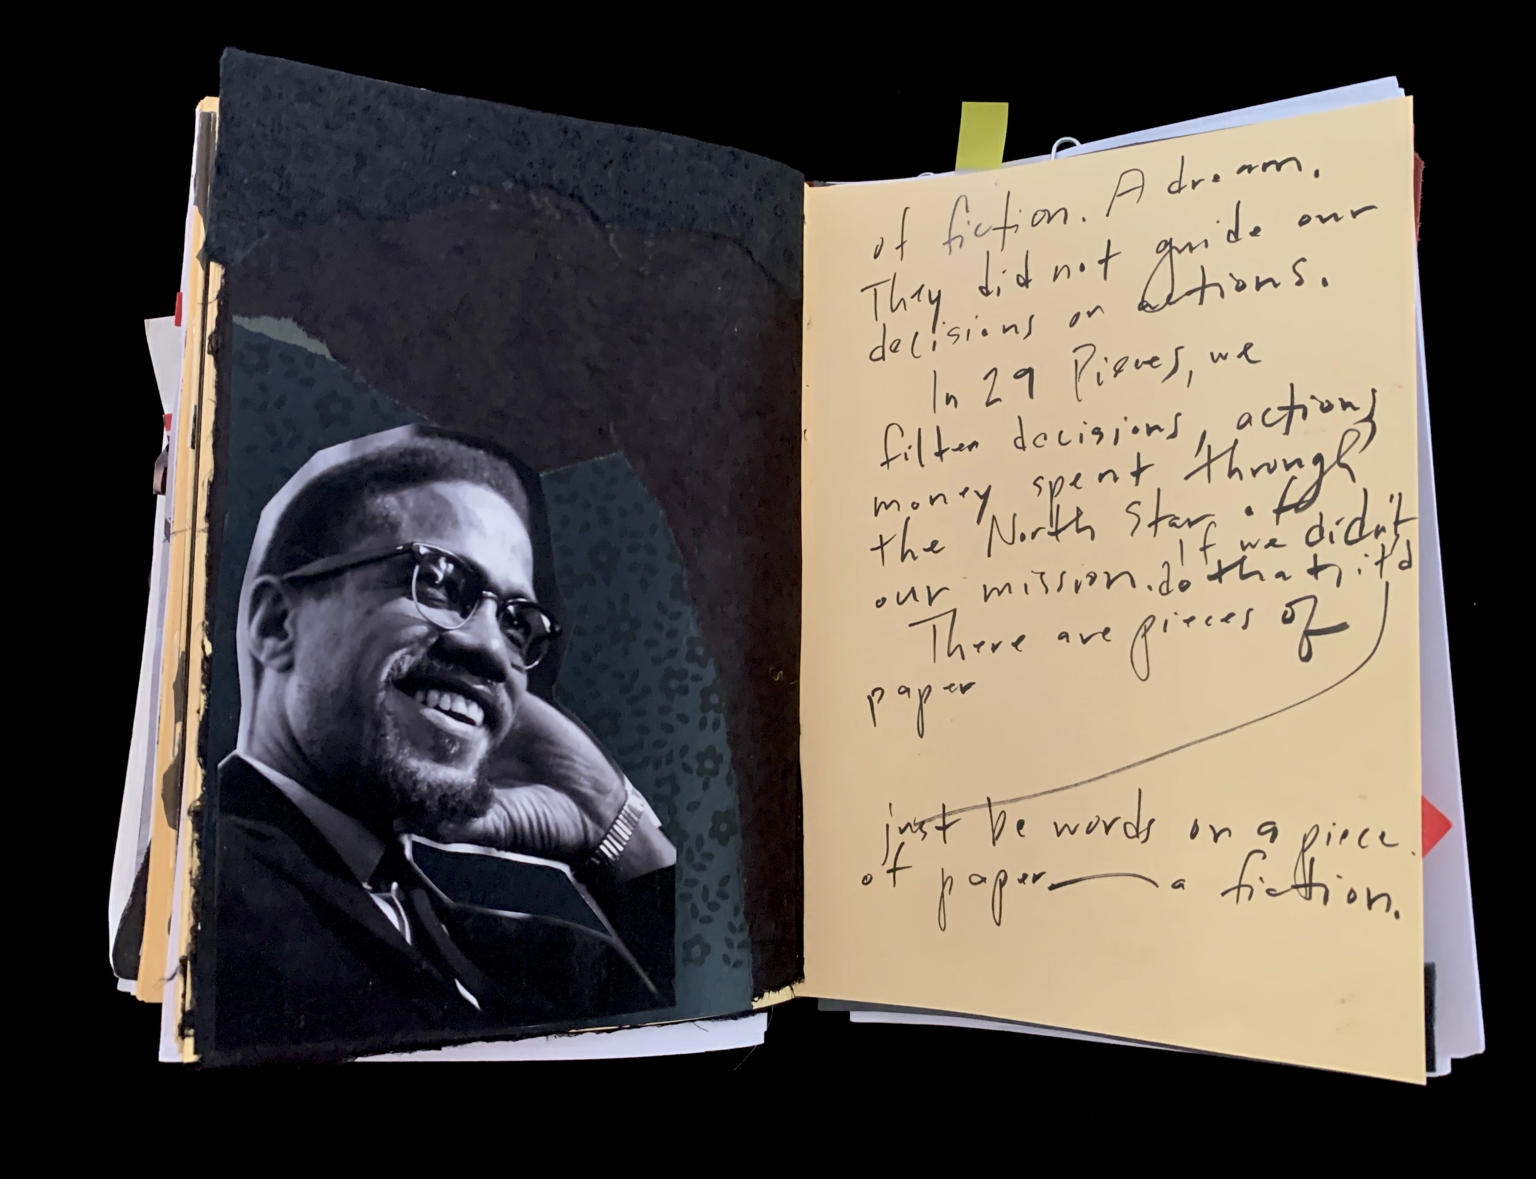 of fiction. A dream.
They did not guide our
decisions or actions.
In 29 Pieces, we
filter decisions, actions,
money spent "through"
the North Star of
our mission. If we didn't
do that, it'd
There are pieces of
paper
just be words on a piece
of paper — a fiction.